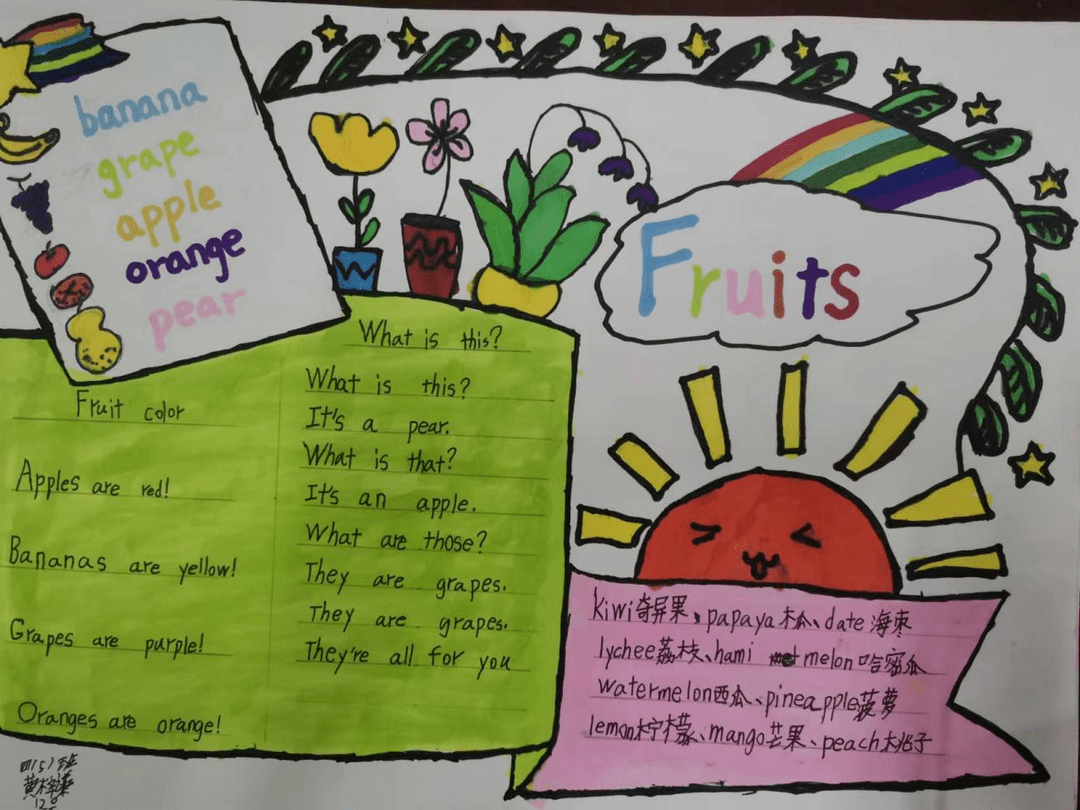 banana
grape
apple
orange
pear
Fruits
Fruit color
Apples are red!
Bananas are yellow!
Grapes are purple!
Oranges are orange!
What is this?
What is this?
It's a pear.
What is that?
It's an apple.
What are those?
They are grapes.
They are grapes.
They're all for you
kiwi奇屏果、papaya木瓜、date海枣
lychee荔枝、hami melon哈密瓜
watermelon西瓜、pineapple菠萝
lemon柠檬、mango芒果、peach桃子
四(5)班